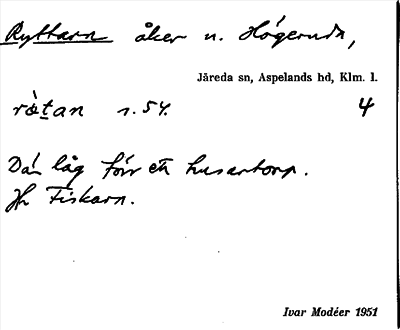 Ryttarn åker u. Högerum,
Järeda sn, Aspelands hd, Klm. l.
ràtan s. 54. 4
Där låg förr ett husartorp.
Jfr Fiskarn.
Ivar Modéer 1951